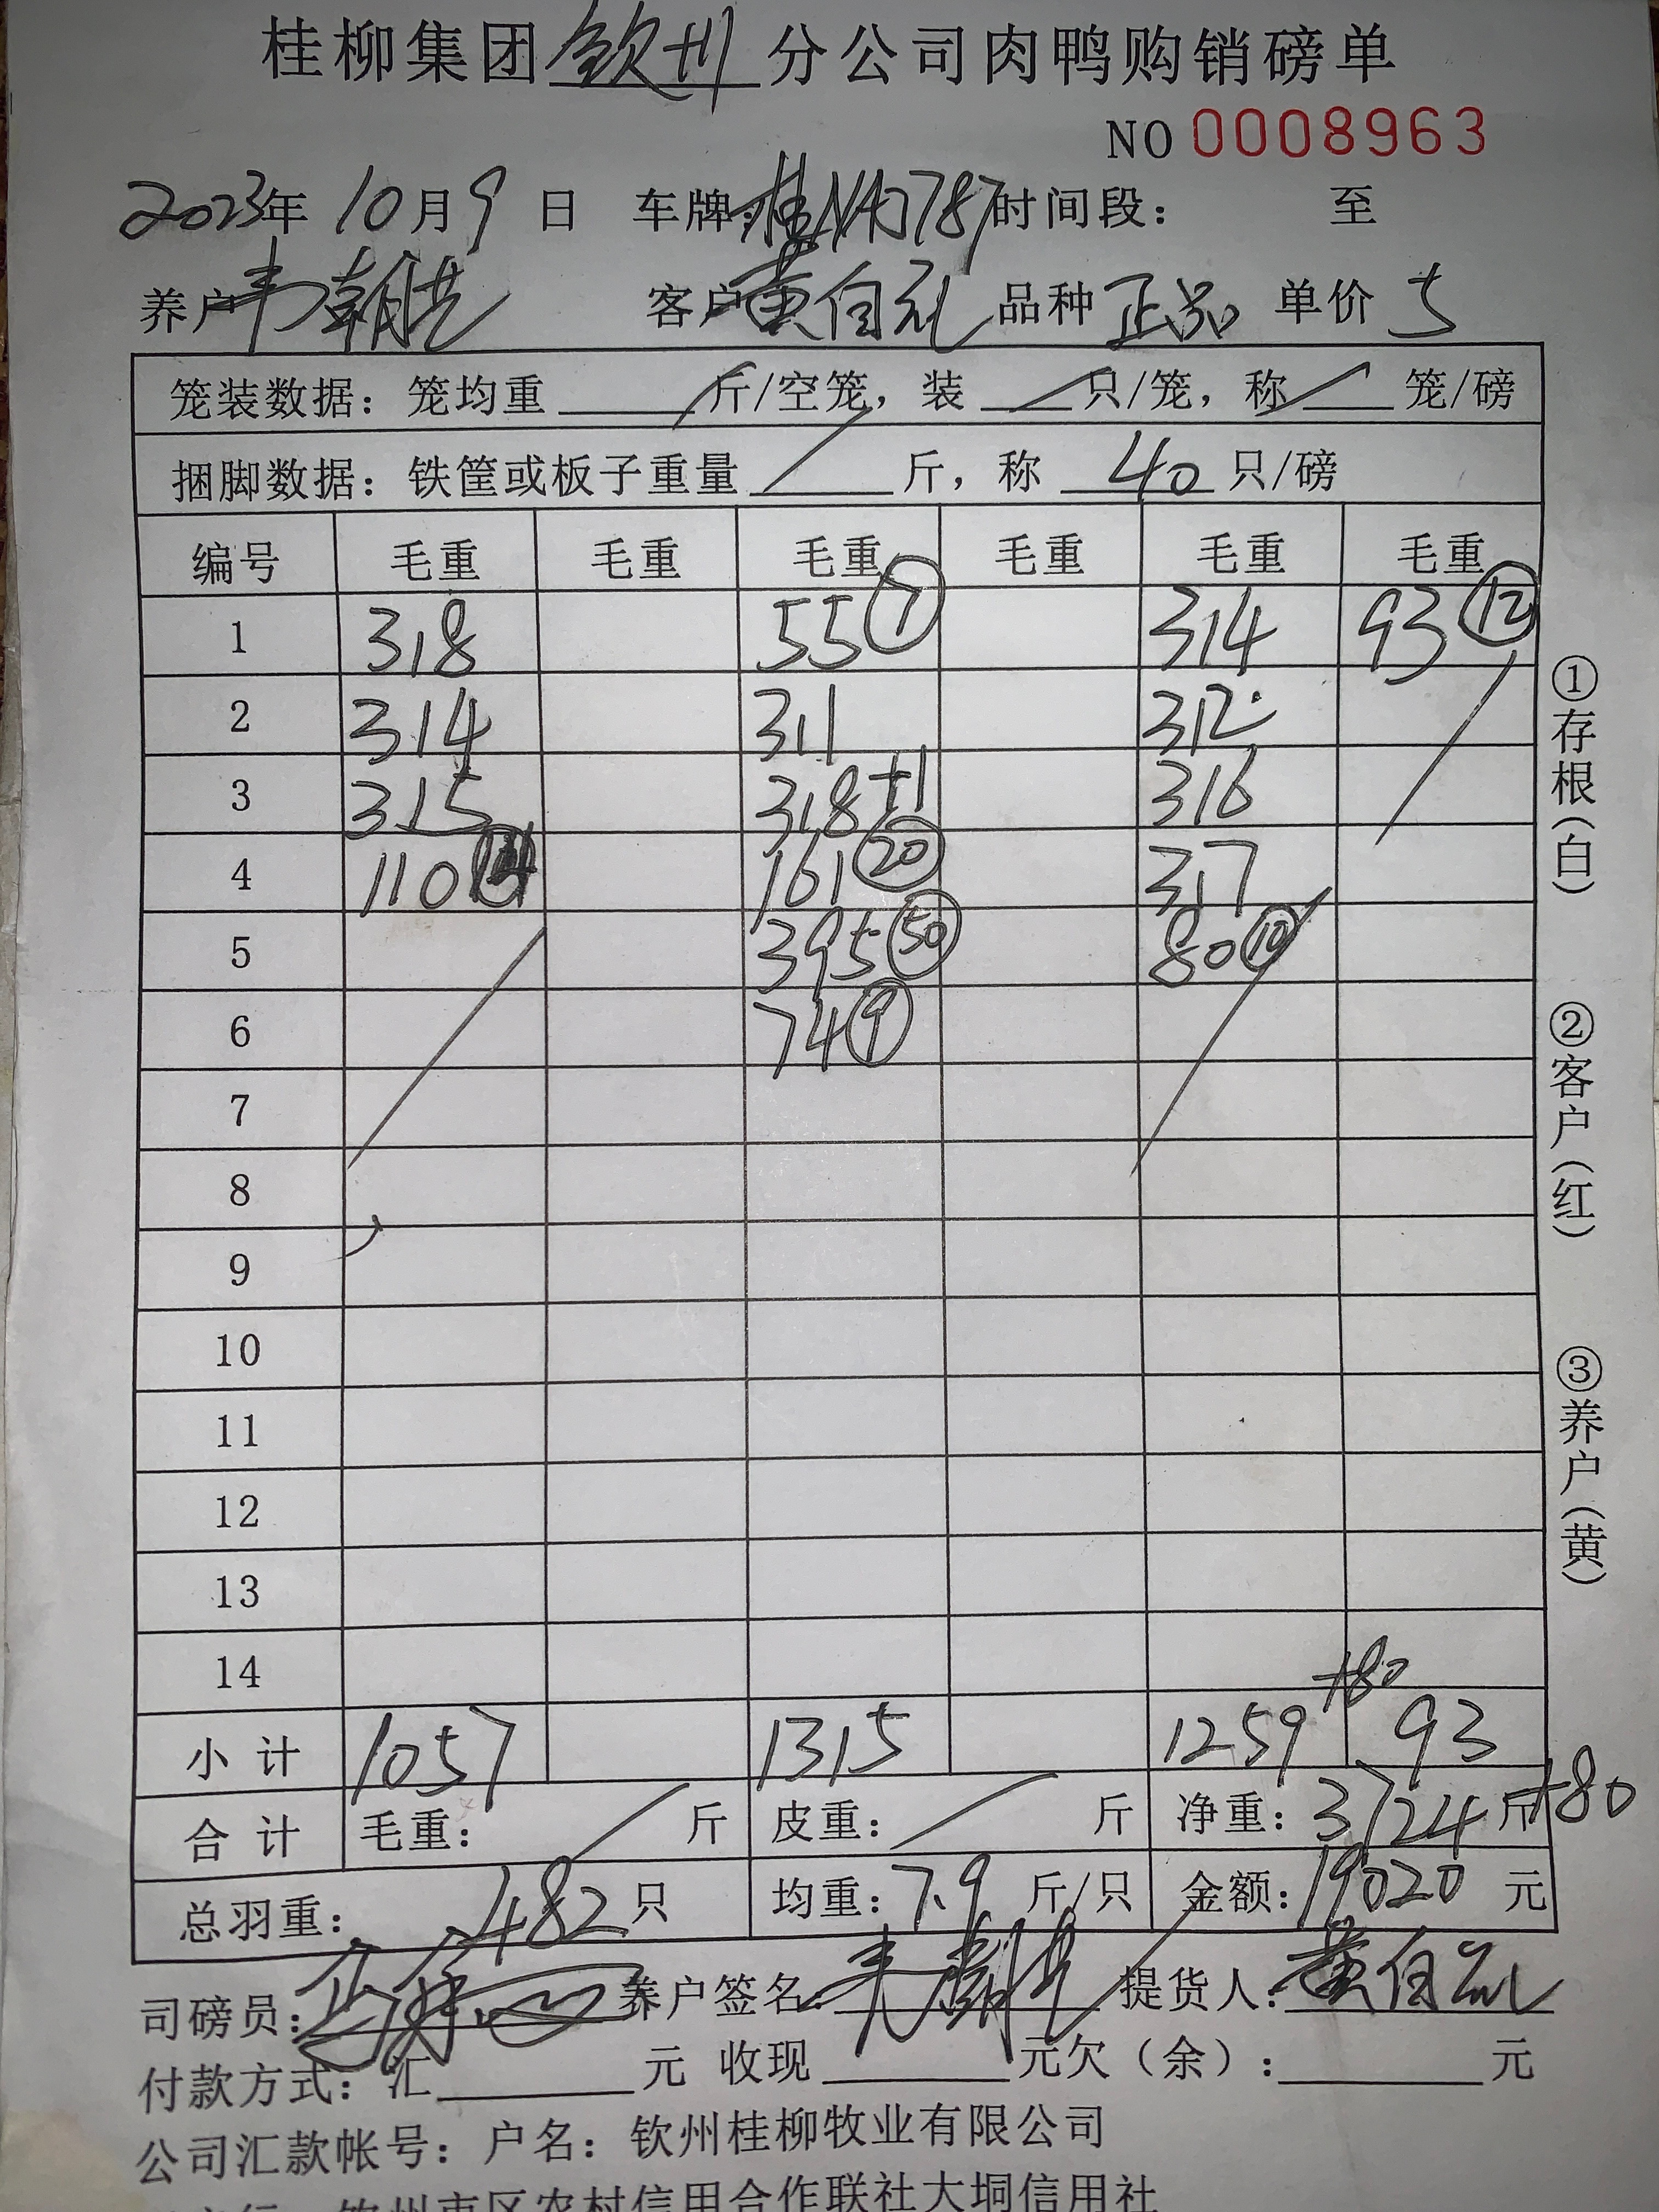 桂柳集团钦州分公司肉鸭购销磅单
NO 0008963
2023年10月9日 车牌:桂NA0787时间段: 至
养户韦朝 客户黄自礼 品种正品 单价5
笼装数据:笼均重/斤/空笼,装/只/笼,称/笼/磅
捆脚数据:铁筐或板子重量/斤,称40只/磅
编号 毛重 毛重 毛重 毛重 毛重 毛重
1 318 55⑦ 314 93⑫
2 314 311 312
3 315 318+1 316
4 110⑭ 161⑳ 317
5 395㊿ 80⑩
6 74⑨
7
8
9
10
11
12
13
14 +80
小计 1057 1315 1259 93
合计 毛重:/斤 皮重:/斤 净重:3724斤+80
总羽重:482只 均重:7.9斤/只 金额:19020元
司磅员: 养户签名:韦朝 提货人:黄自礼
付款方式:汇 元 收现 元欠(余): 元
公司汇款帐号:户名:钦州桂柳牧业有限公司
钦州市区农村信用合作联社大垌信用社
①存根(白)
②客户(红)
③养户(黄)